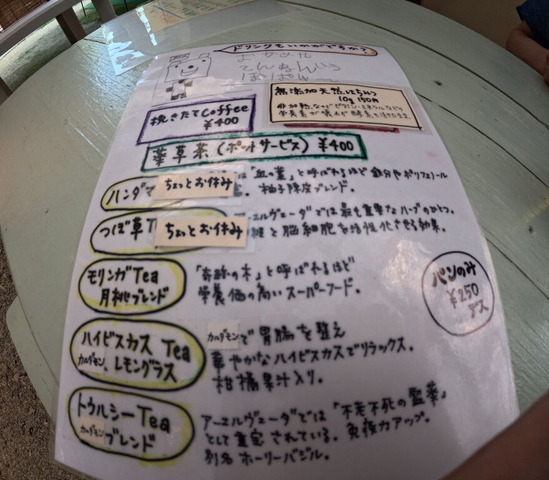 ドリンクもいかがですか?
挽きたてCoffee
¥400
無添加天然はちみつ
10g 150円
薬草茶(ポットサービス) ¥400
ハンダマ ちょっとお休み は「血の葉」と呼ばれるほど鉄分やポリフェノール
柚子陳皮ブレンド。
つぼ草T ちょっとお休み アーユルヴェーダでは最も重要なハーブのひとつ。
と脳細胞を活性化させる効果。
モリンガTea
月桃ブレンド
「奇跡の木」と呼ばれるほど
栄養価の高いスーパーフード。
パンのみ
¥250
アス
ハイビスカス Tea
カルダモン、レモングラス
カルダモンで胃腸を整え
華やかなハイビスカスでリラックス。
柑橘果汁入り。
トゥルシーTea
カルダモンブレンド
アーユルヴェーダでは「不老不死の霊薬」
として重宝されている。免疫力アップ。
別名ホーリーバジル。